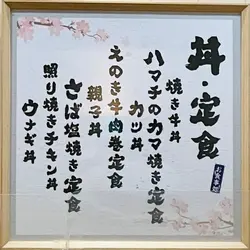 丼・定食
お食事処
焼き牛丼
ハマチのカマ焼き定食
カツ丼
えのき牛肉巻定食
親子丼
さば塩焼き定食
照り焼きチキン丼
ウナギ丼